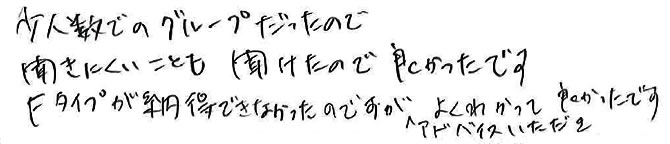 少人数でのグループだったので
聞きにくいことも 聞けたので 良かったです
Fタイプが納得できなかったのですが よくわかって 良かったです
^アドバイスいただき